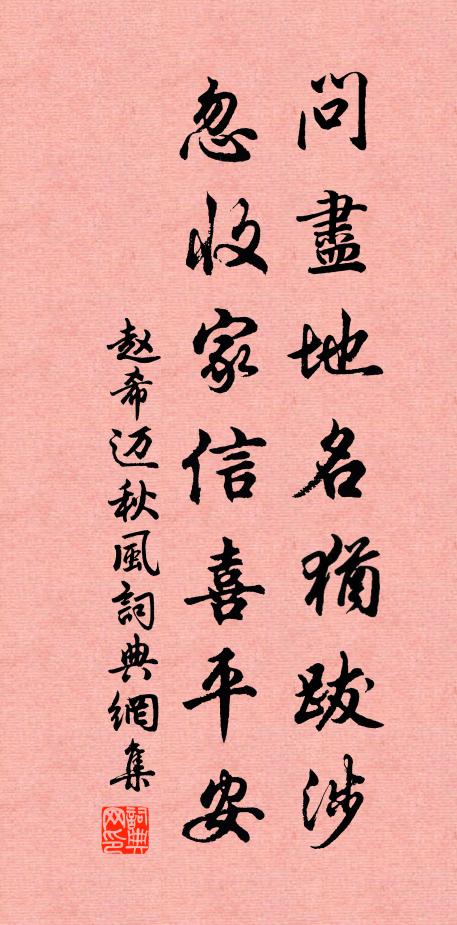 問盡地名猶跋涉
忽收家信喜平安
赵希迈秋風詞典網集
詞典网印